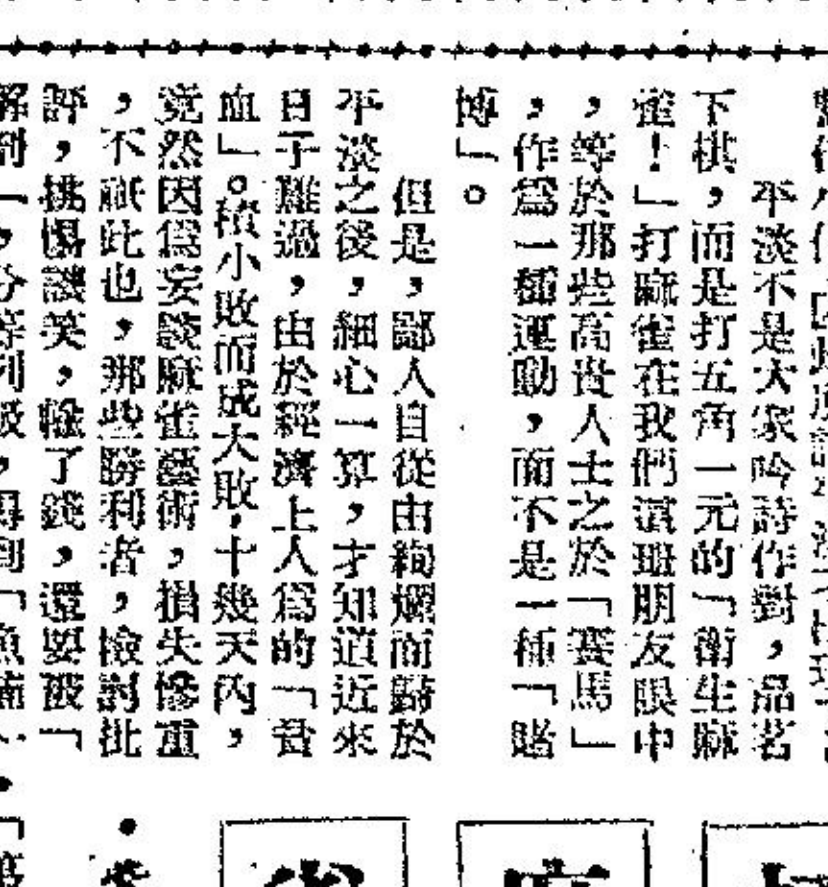 平淡不是大家吟詩作對，品茗
下棋，而是打五角一元的「衛生麻
雀！」打麻雀在我們這班朋友眼中
，等於那些高貴人士之於「賽馬」
，作爲一種運動，而不是一種「賭
博」。
但是，鄙人自從由絢爛而歸於
平淡之後，細心一算，才知道近來
日子難過，由於經濟上人爲的「貧
血」。積小敗而成大敗，十幾天內，
竟然因爲妄談麻雀藝術，損失慘重
，不祇此也，那些勝利者，檢討批
評，挑惕談笑，輸了錢，還要被「